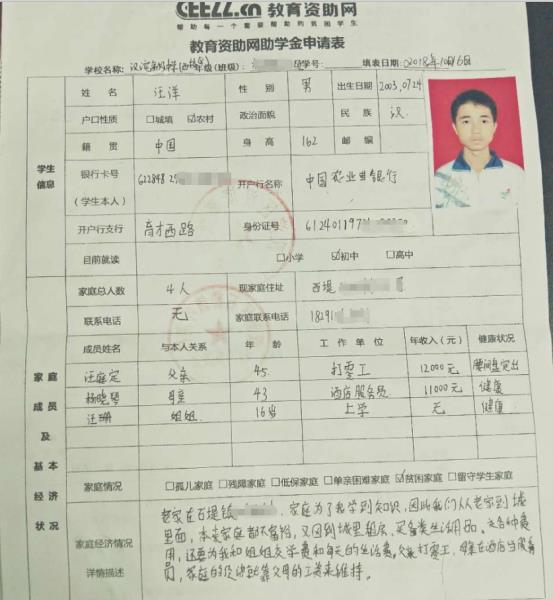 教育资助网
帮助每一个需要帮助的贫困学生
教育资助网助学金申请表
学校名称: 年级(班级): 学号: 填表日期:2018年10月6日
姓名 汪洋 性别 男 出生日期 2003.0724
户口性质 □城填 ☑农村 政治面貌 民族 汉
籍贯 中国 身高 162 邮编
学生信息
银行卡号(学生本人) 622848 开户行名称 中国农业银行
开户行支行 育才西路 身份证号 612401197
目前就读 □小学 ☑初中 □高中
家庭总人数 4人 现家庭住址 西堤
联系电话 无 家庭联系电话 18291
成员姓名 与本人关系 年龄 工作单位 年收入(元) 健康状况
汪庭定 父亲 45 打零工 12000元 腰间盘突出
杨晓琴 母亲 43 酒店服务员 11000元 健康
汪珊 姐姐 16岁 上学 无 健康
家庭成员及基本经济状况
家庭情况 □孤儿家庭 □残障家庭 □低保家庭 □单亲困难家庭 ☑贫困家庭 □留守学生家庭
家庭经济情况详情描述
老家在百堤镇 家庭为了我学到知识,因此我们从老家到城
里面,本来家庭都不富裕,又回到城里租房,买各类生活用品,交各种费
用,还要为我和姐姐交学费和每天的生活费,父亲打零工,母亲在酒店当服务
员,家庭的 靠父母的工资来维持。